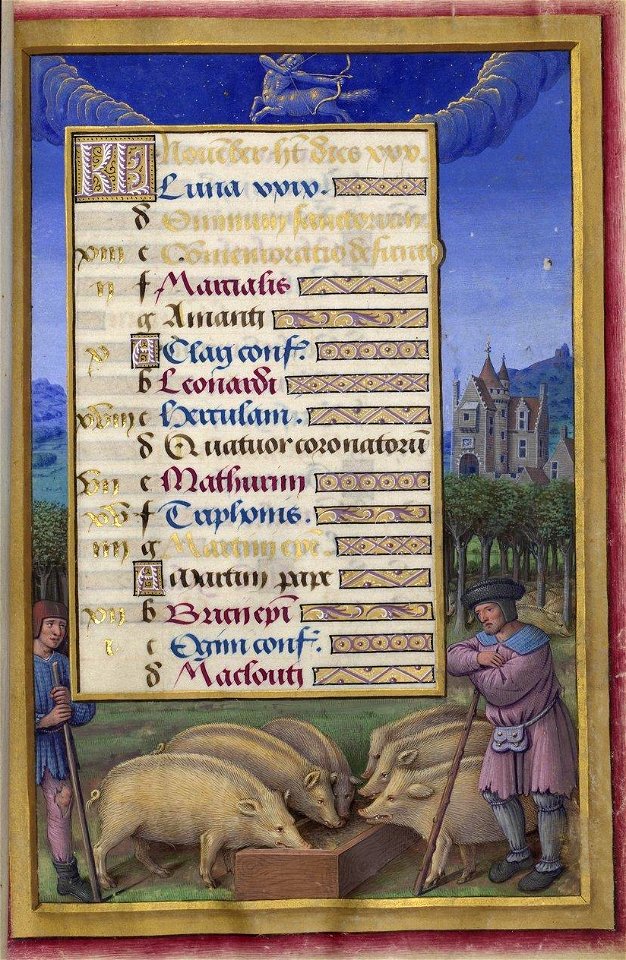 KL Nouēber ht dies xxx.
Luna xxix.
d Omnium sanctorum
xiii e Comemoratio defunct
ii f Marcialis
g Amanti
x A Elay conf.
b Leonardi
xviii c Herculani.
d Quatuor coronatorū
vii e Mathurini
xv f Triphonis.
iiii g Martini epī
A Martini pape
xii b Bricii epī
i c Eginii conf.
d Maclouti